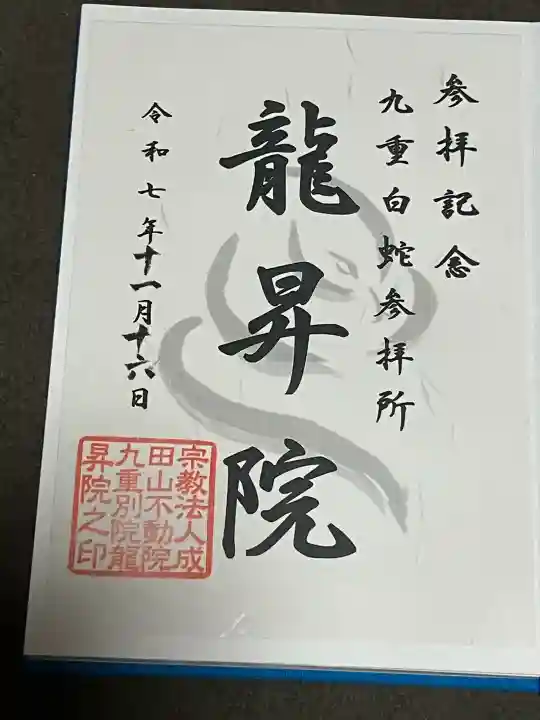 参拝記念
九重白蛇参拝所
龍昇院
令和七年十一月十六日
宗教法人成
田山不動院
九重別院龍
昇院之印